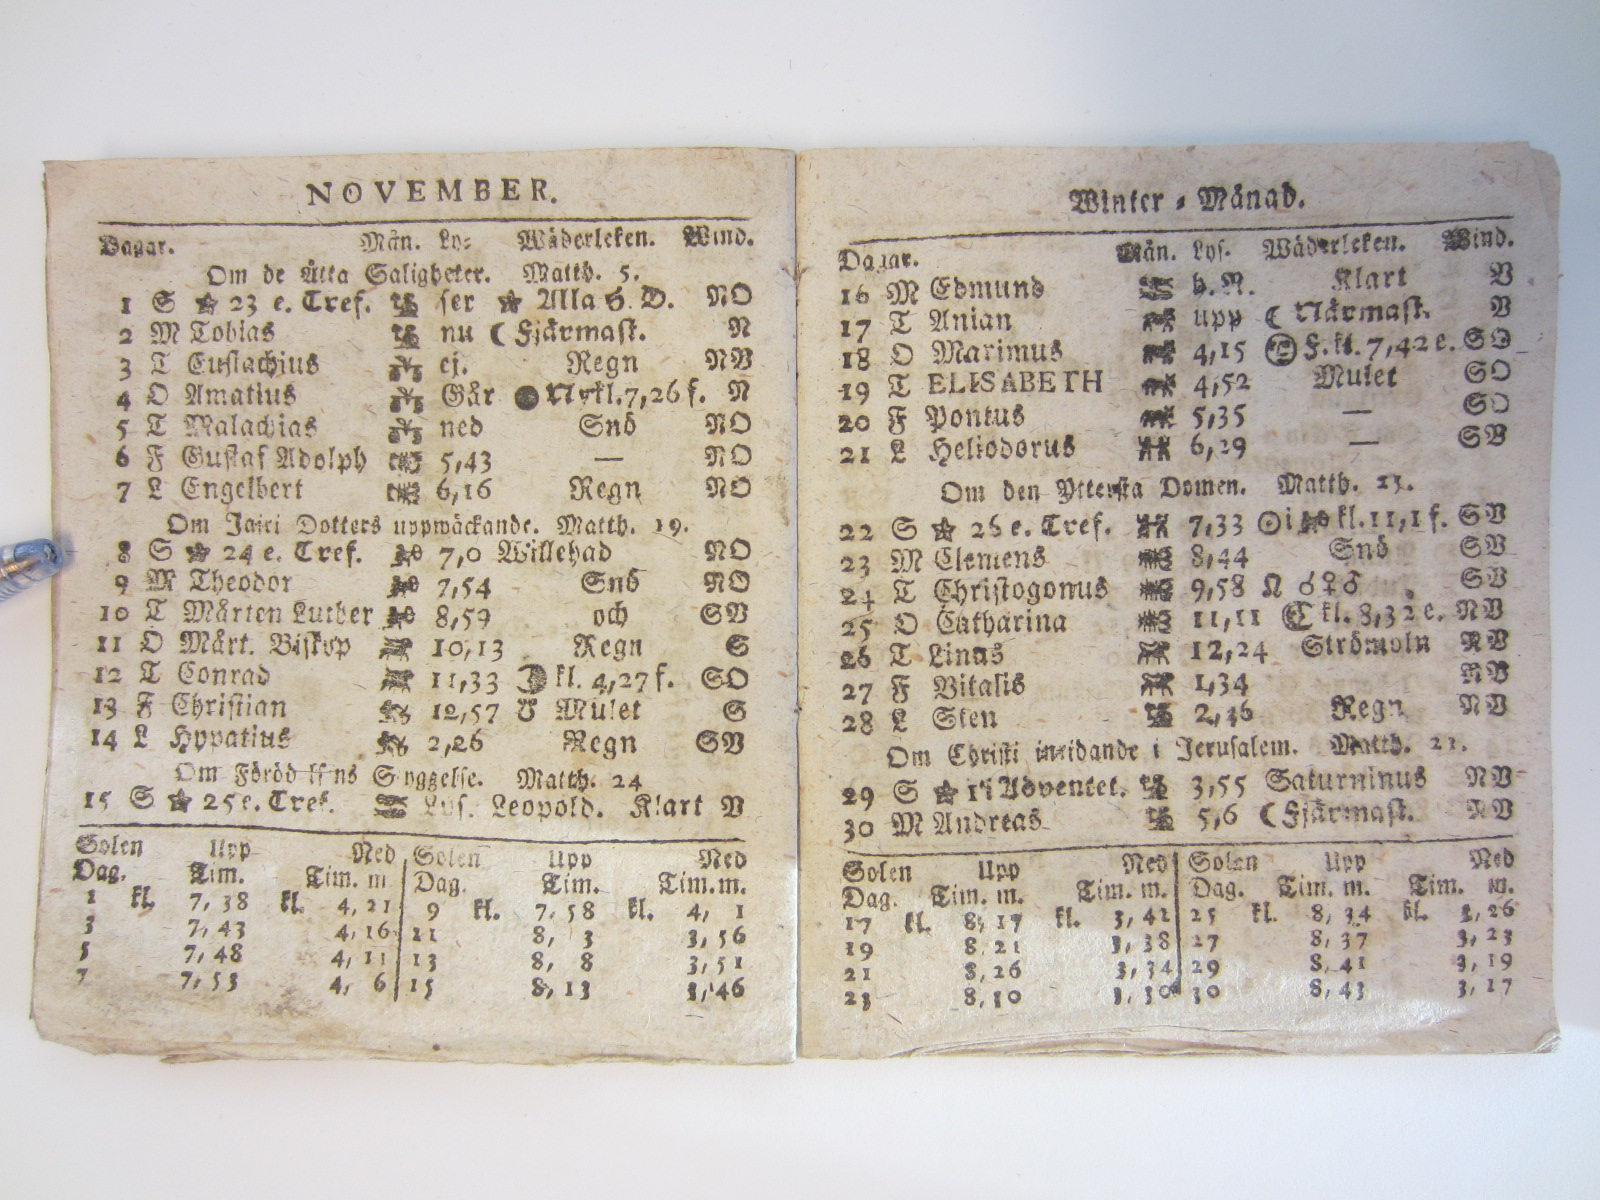 NOVEMBER.
Dagar. Mån. Lys. Wäderleken. Wind.
Om de Åtta Saligheter. Matth. 5.
1 S 23 e. Tref. ser Alla H. D. NO
2 M Tobias nu ☾ Fjärmast. N
3 T Eustachius ej. Regn NV
4 O Amatius Går ● Ny kl. 7,26 f. N
5 T Malachias ned Snö NO
6 F Gustaf Adolph 5,43 — NO
7 L Engelbert 6,16 Regn NO
Om Jairi Dotters uppwäckande. Matth. 19.
8 S 24 e. Tref. 7,0 Willehad NO
9 M Theodor 7,54 Snö NO
10 T Mårten Luther 8,59 och SV
11 O Mårt. Biskop 10,13 Regn S
12 T Conrad 11,33 ☽ kl. 4,27 f. SO
13 F Christian 12,57 ☋ Mulet S
14 L Hypatius 2,26 Regn SV
Om Förödelsens Styggelse. Matth. 24
15 S 25 e. Tref. Lys. Leopold. Klart V
Solen Upp Ned Solen Upp Ned
Dag. Tim. Tim. m Dag. Tim. Tim. m.
1 kl. 7,38 kl. 4,21 9 kl. 7,58 kl. 4, 1
3 7,43 4,16 11 8, 3 3,56
5 7,48 4,11 13 8, 8 3,51
7 7,53 4, 6 15 8,13 3,46
Winter-Månad.
Dagar. Mån. Lys. Wäderleken. Wind.
16 M Edmund b. N. Klart V
17 T Anian upp ☾ Närmast. V
18 O Maximus 4,15 F. kl. 7,42 e. SO
19 T ELISABETH 4,52 Mulet SO
20 F Pontus 5,35 — SO
21 L Heliodorus 6,29 — SV
Om den Yttersta Domen. Matth. 25.
22 S 26 e. Tref. 7,33 ☉ i kl. 11,1 f. SV
23 M Clemens 8,44 Snö SV
24 T Christogonus 9,58 ☊ ☌ ♀ ♂ SV
25 O Catharina 11,11 ☾ kl. 8,32 e. NV
26 T Linus 12,24 Strömoln NV
27 F Vitalis 1,34 NV
28 L Sten 2,46 Regn NV
Om Christi inridande i Jerusalem. Matth. 21.
29 S 1 i Adventet. 3,55 Saturninus NV
30 M Andreas 5,6 ☾ Fjärmast. NV
Solen Upp Ned Solen Upp Ned
Dag. Tim. m. Tim. m. Dag. Tim. m. Tim. m.
17 kl. 8,17 kl. 3,42 25 kl. 8,34 kl. 3,26
19 8,21 3,38 27 8,37 3,23
21 8,26 3,34 29 8,41 3,19
23 8,30 3,30 30 8,43 3,17